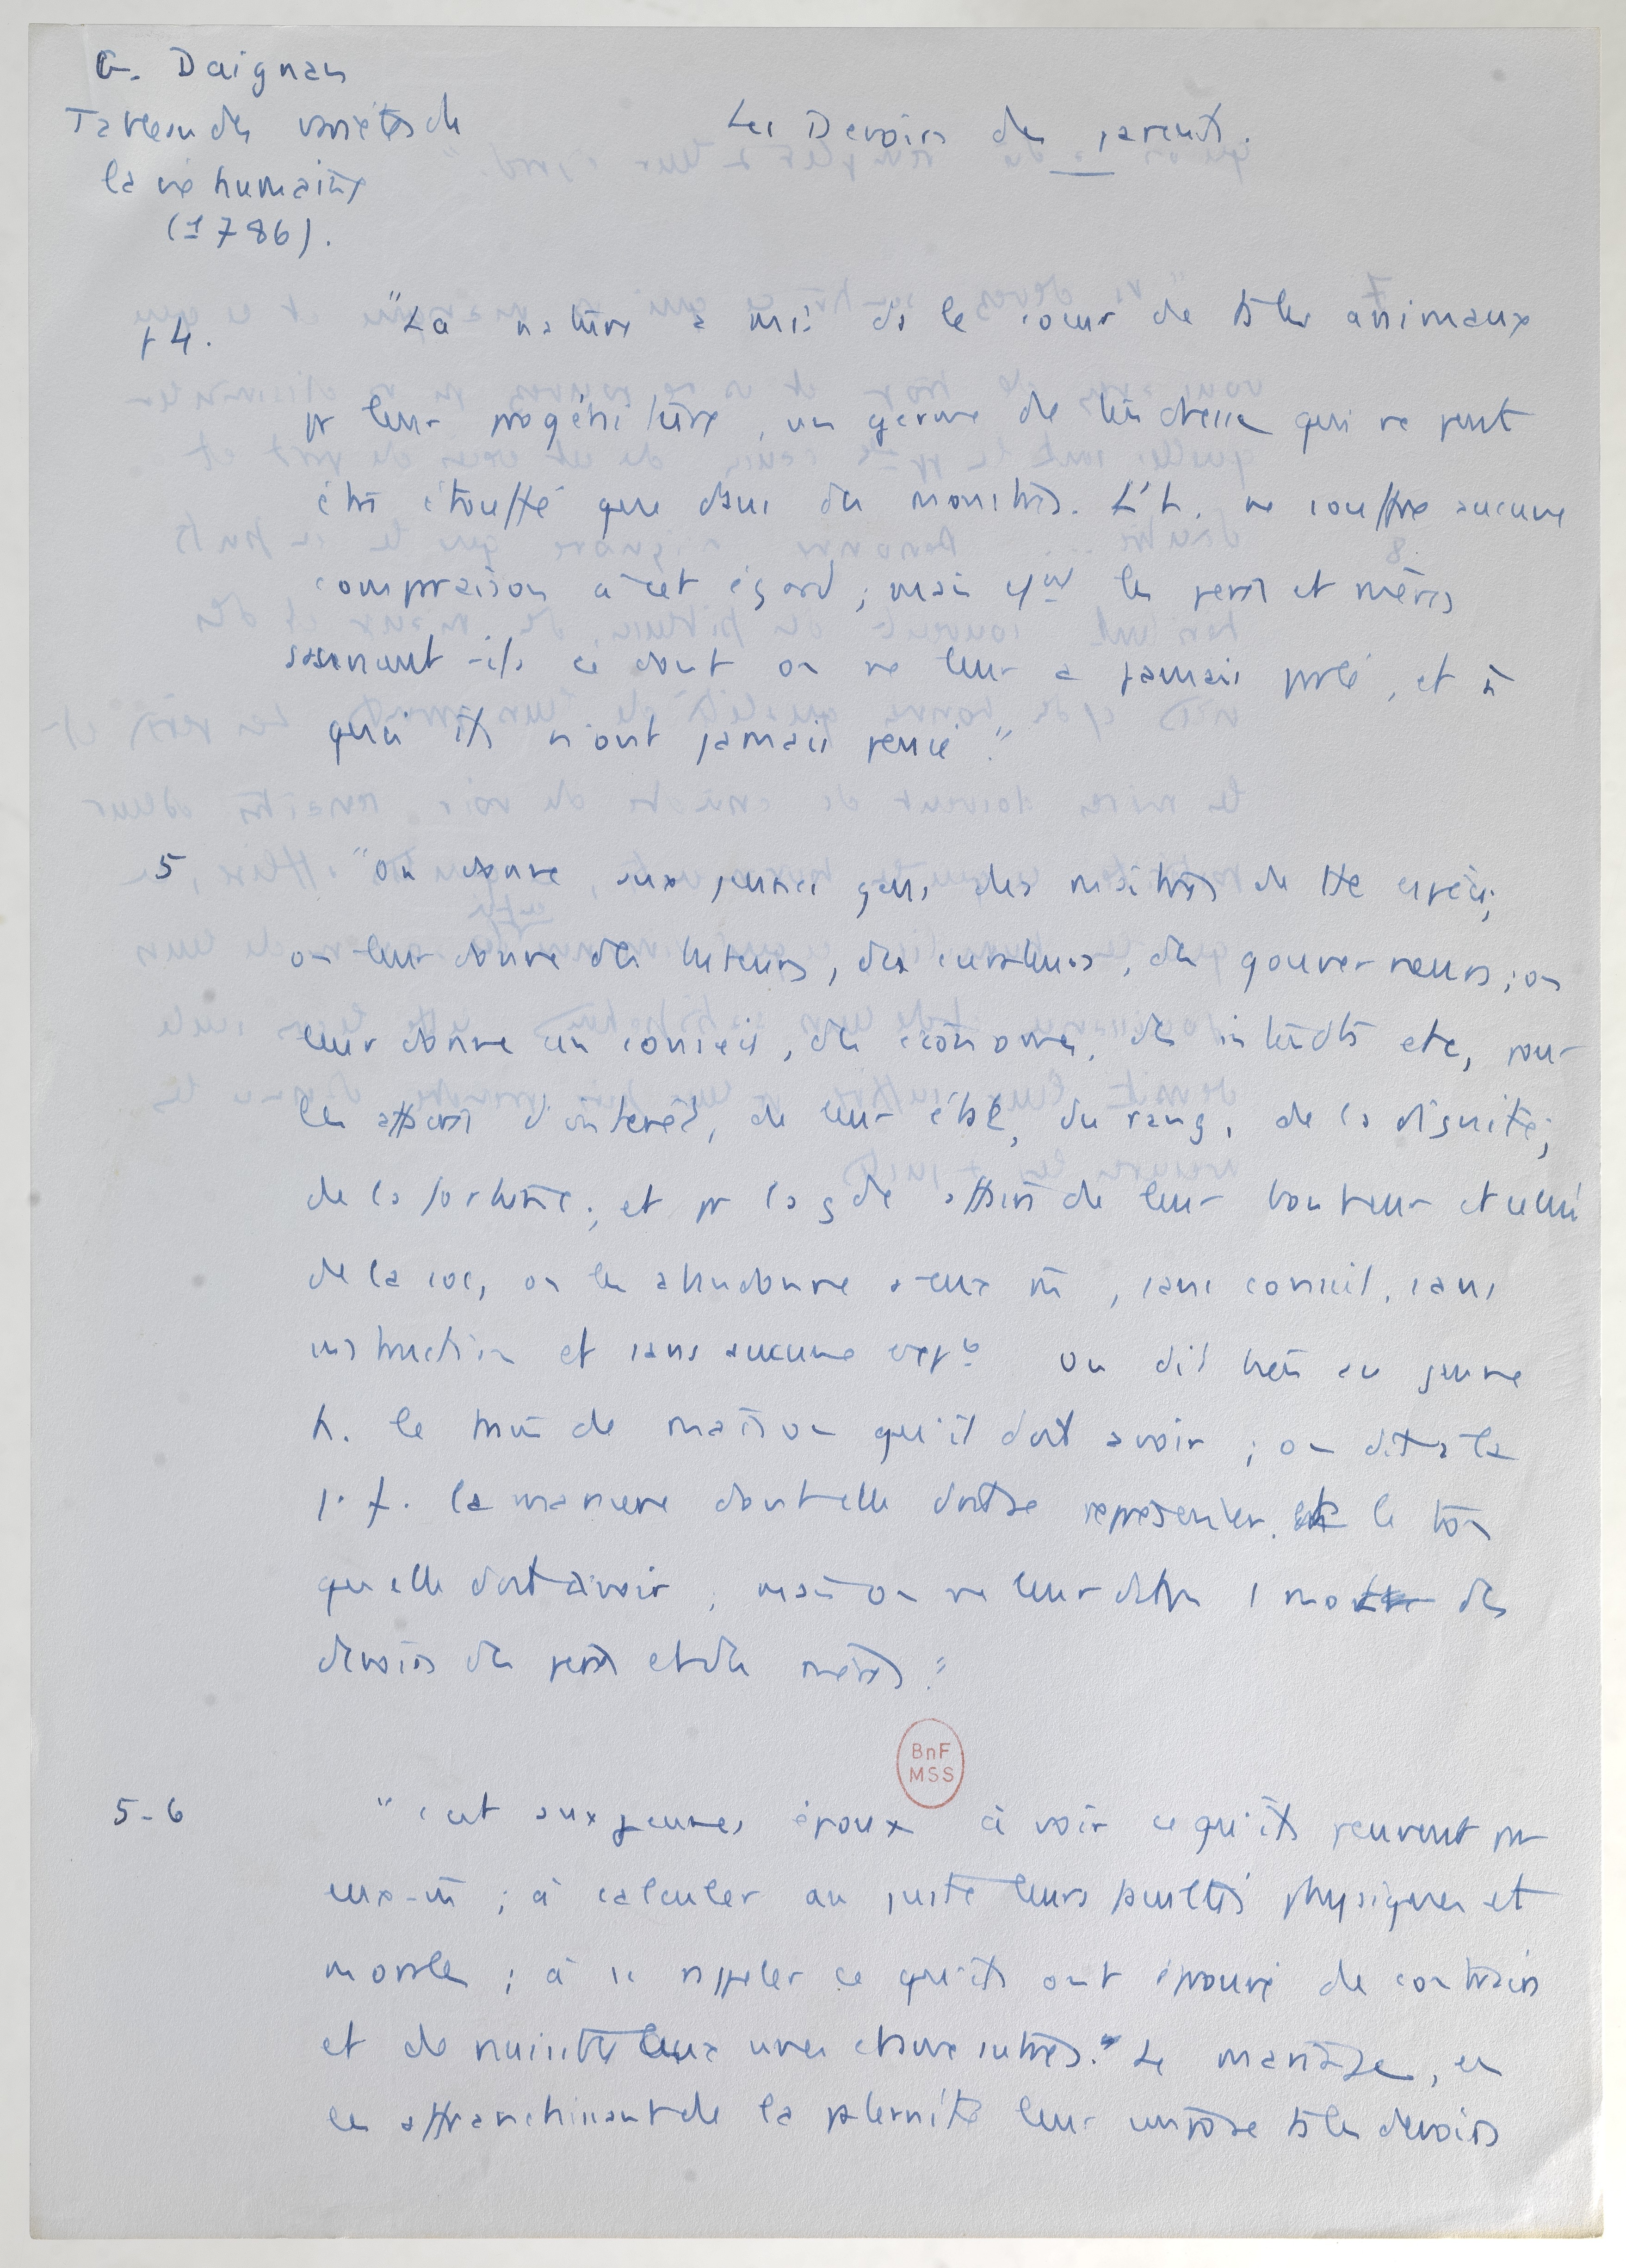 G. Daignan
Tableau des variétés de
la vie humaine
(1786).
Les Devoirs des parents.
p 4. "La nature a mis ds le coeur de ts les animaux
pr leur progéniture, un germe de tendresse qui ne peut
être étouffé que dans des monstres. L'h. ne souffre aucune
comparaison à cet égard ; mais les pères et mères
-ils ce dont on ne leur a jamais parlé, et à
quoi ils n'ont jamais pensé."
5 "On donne aux jeunes gens des maîtres de tte espèce;
on leur donne des tuteurs, des curateurs, des gouverneurs ; on
leur donne un conseil, des économes, des intendts etc, pour
les affaires d'intérêt, de leur état, du rang, de la dignité,
de la fortune ; et pr la gde affaire de leur bonheur et celui
de la soc, on les abandonne à eux m̄, sans conseil, sans
instruction et sans aucune expce On dit bien au jeune
h. le train de maison qu'il doit avoir ; on dit à la
j. f. la manière dont elle doit se représenter, le ton
qu'elle doit avoir ; mais on ne leur dit pas 1 mot des
devoirs des pères et des mères."
BnF
MSS
5-6 "C'est aux jeunes époux à voir ce qu'ils peuvent par
eux-m̄ ; à calculer au juste leurs facultés physiques et
morales ; à se rappeler ce qu'ils ont éprouvé de contraire
et de nuisible aux unes et aux autres." Le mariage, en
les affranchissant de la paternité leur impose ts les devoirs